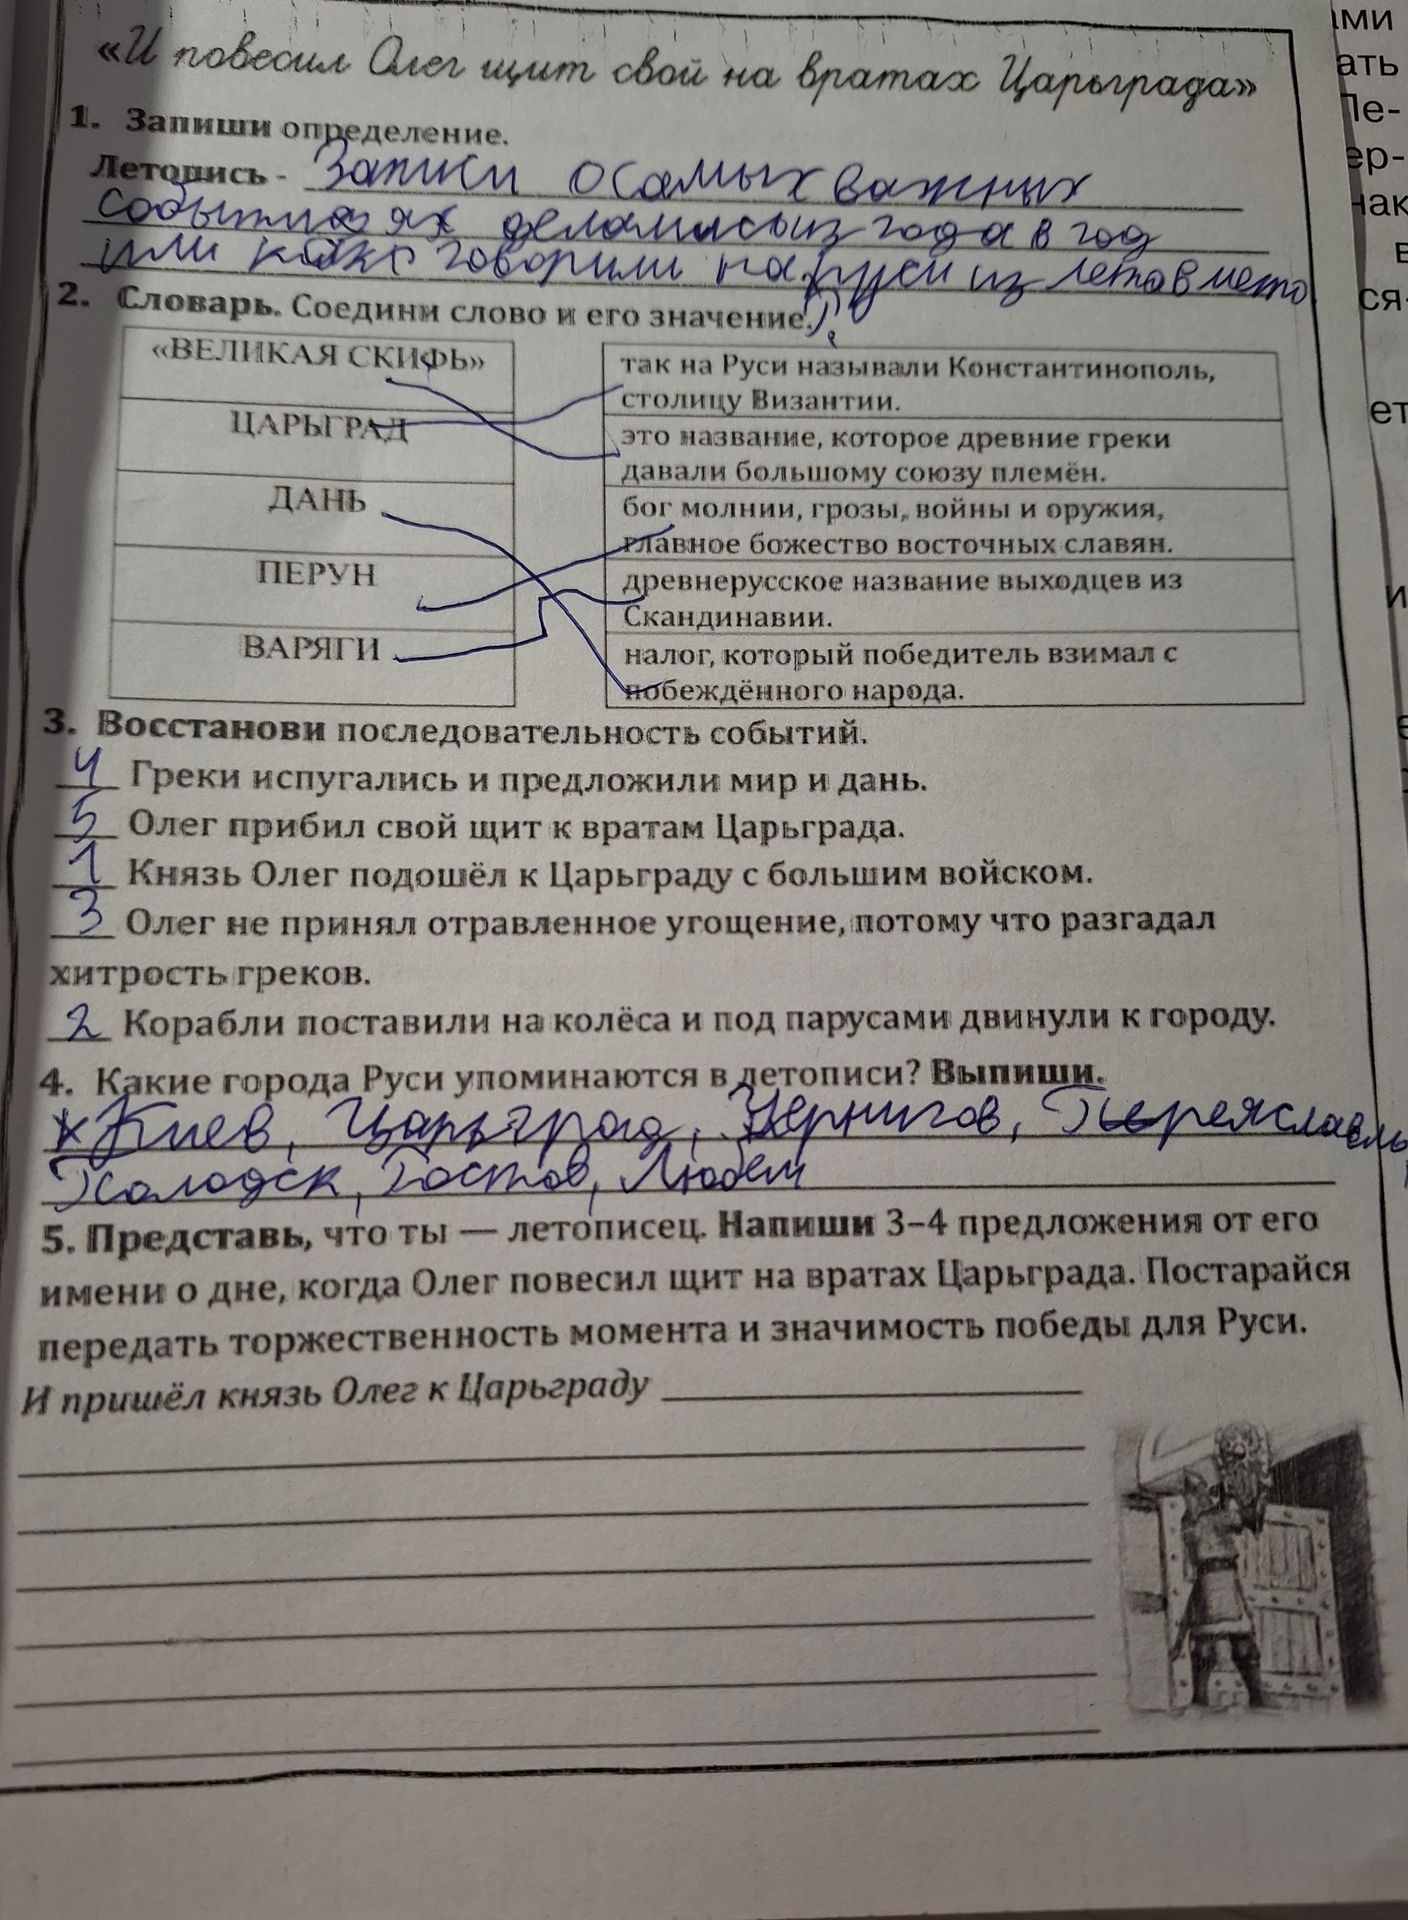 «И повесил Олег щит свой на вратах Царьграда»
1. Запиши определение.
Летопись - Записки о самых важных
событиях делались из года в год
или как говорили на руси из лета в лето
2. Словарь. Соедини слово и его значение.
«ВЕЛИКАЯ СКИФЬ»
ЦАРЬГРАД
ДАНЬ
ПЕРУН
ВАРЯГИ
так на Руси называли Константинополь,
столицу Византии.
это название, которое древние греки
давали большому союзу племён.
бог молнии, грозы, войны и оружия,
главное божество восточных славян.
древнерусское название выходцев из
Скандинавии.
налог, который победитель взимал с
побеждённого народа.
3. Восстанови последовательность событий.
4 Греки испугались и предложили мир и дань.
5 Олег прибил свой щит к вратам Царьграда.
1 Князь Олег подошёл к Царьграду с большим войском.
3 Олег не принял отравленное угощение, потому что разгадал
хитрость греков.
2 Корабли поставили на колёса и под парусами двинули к городу.
4. Какие города Руси упоминаются в летописи? Выпиши.
Киев, Царьград, Чернигов, Переяславль,
Полодск, Ростов, Любеч
5. Представь, что ты — летописец. Напиши 3–4 предложения от его
имени о дне, когда Олег повесил щит на вратах Царьграда. Постарайся
передать торжественность момента и значимость победы для Руси.
И пришёл князь Олег к Царьграду
ами
ать
Пе-
ер-
нак
в
ся-
ет
и